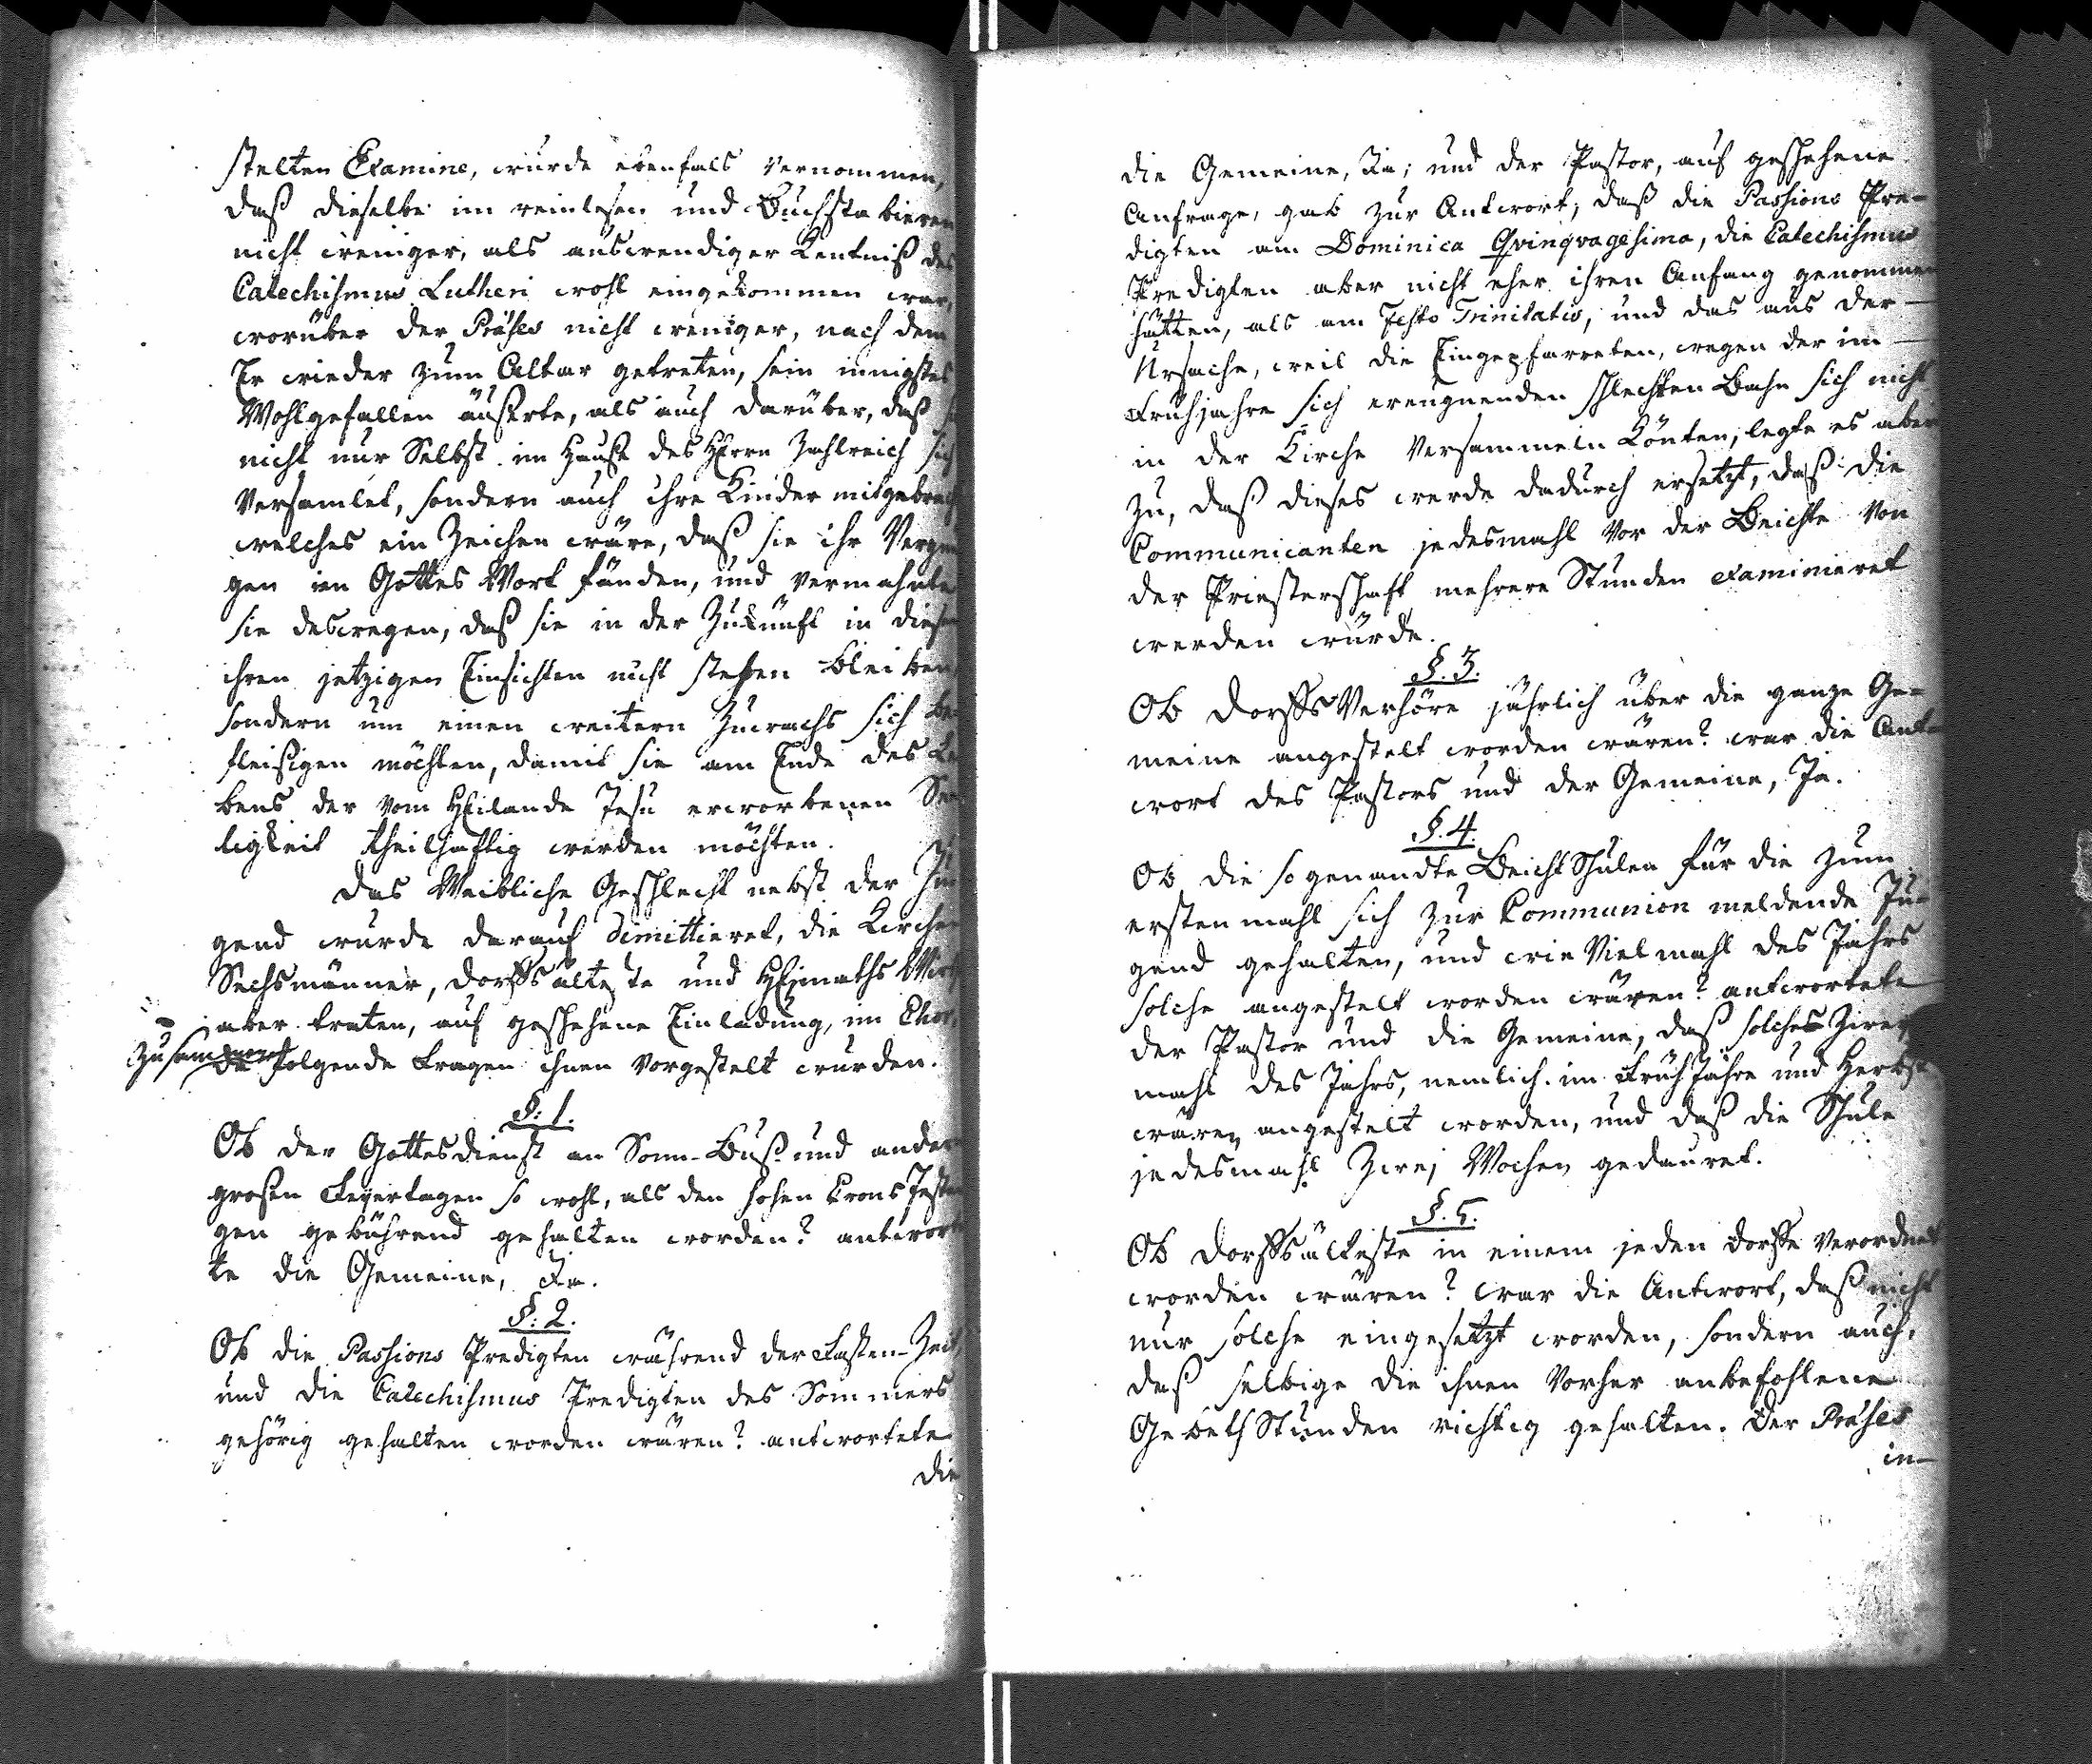 stelten Examine, wurde ebenfals vernommen,
daß dieselbe im reinlesen und Buchstabieren
nicht weniger, als auswendiger Kentniß des
Catechismus Lutheri wohl eingekommen war,
worüber der Präses nicht weniger, nach dem
Er wieder zum Altar getreten, sein innigstes
Wohlgefallen äuserte, als auch darüber, daß
nicht nur Selbst im Hause des HErrn Zahlreich sich
versamlet, sondern auch ihre Kinder mitgebracht
welches ein Zeichen wäre, daß sie ihr Vergnü
gen in Gottes Wort fänden, und vermahnte
sie deswegen, daß sie in der Zukunft in diesen
ihren jetzigen Einsichten nicht stehen bleiben
sondern um einen weitern Zuwachs sich be
fleißigen möchten, damit sie am Ende des Le
bens der vom HEilande Jesu erworbenen See
ligkeit theilhaftig werden möchten.
Das Weibliche Geschlecht nebst der Ju
gend wurde darauf dimittieret, die Kirchen
Sechsmänner, Dorffsälteste und HEimaths Wirthe
aber traten, auf geschehene Einladung, im Chor,
zusammen
da folgende Fragen ihnen vorgestelt wurden.
§: 1.
Ob der Gottesdienst an Sonn- Buß- und andern
großen Feyertagen so wohl, als den hohen Crons Festta
gen gebührend gehalten worden? antworte
te die Gemeine, Ja.
§: 2.
Ob die Passions Predigten während der Fasten-Zeit
und die Catechismus Predigten des Sommers
gehörig gehalten worden wären? antwortete
die
die Gemeine, Ja; und der Pastor, auf geschehene
Anfrage, gab zur Antwort, daß die Passions Pre-
digten am Dominica Qvinqvagesima, die Catechismus
Predigten aber nicht eher ihren Anfang genommen
hätten, als am Festo Trinitatis, und das aus der
Ursache, weil die Eingepfarreten, wegen der im
Frühjahre sich ereugnenden schlechten Bahn sich nicht
in der Kirche versammeln könten, legte es aber
zu, daß dieses werde dadurch ersetzt, daß die
Communicanten jedesmahl vor der Beichte von
der Priesterschaft mehrere Stunden examinieret
werden würde.
§. 3.
Ob Dorffs Verhöre jährlich über die ganze Ge-
meine angestelt worden wären? war die Ant-
wort des Pastors und der Gemeine, Ja.
§. 4.
Ob die so genandte Beicht Schulen für die zum
ersten mahl sich zur Communion meldende Ju-
gend gehalten, und wie Vielmahl des Jahrs
solche angestelt worden wären? antwortete
der Pastor und die Gemeine, daß solches Zwey
mahl des Jahrs, nemlich im Früh Jahre und Herbst
wären angestelt worden, und daß die Schule
jedesmahl Zwej Wochen gedauret.
§. 5.
Ob Dorffsälteste in einem jeden Dorffe verordnet
worden wären? war die Antwort, daß nicht
nur solche eingesetzt worden, sondern auch,
daß selbige die ihnen vorher anbefohlene
Gebeth Stunden richtig gehalten. Der Präses
in-